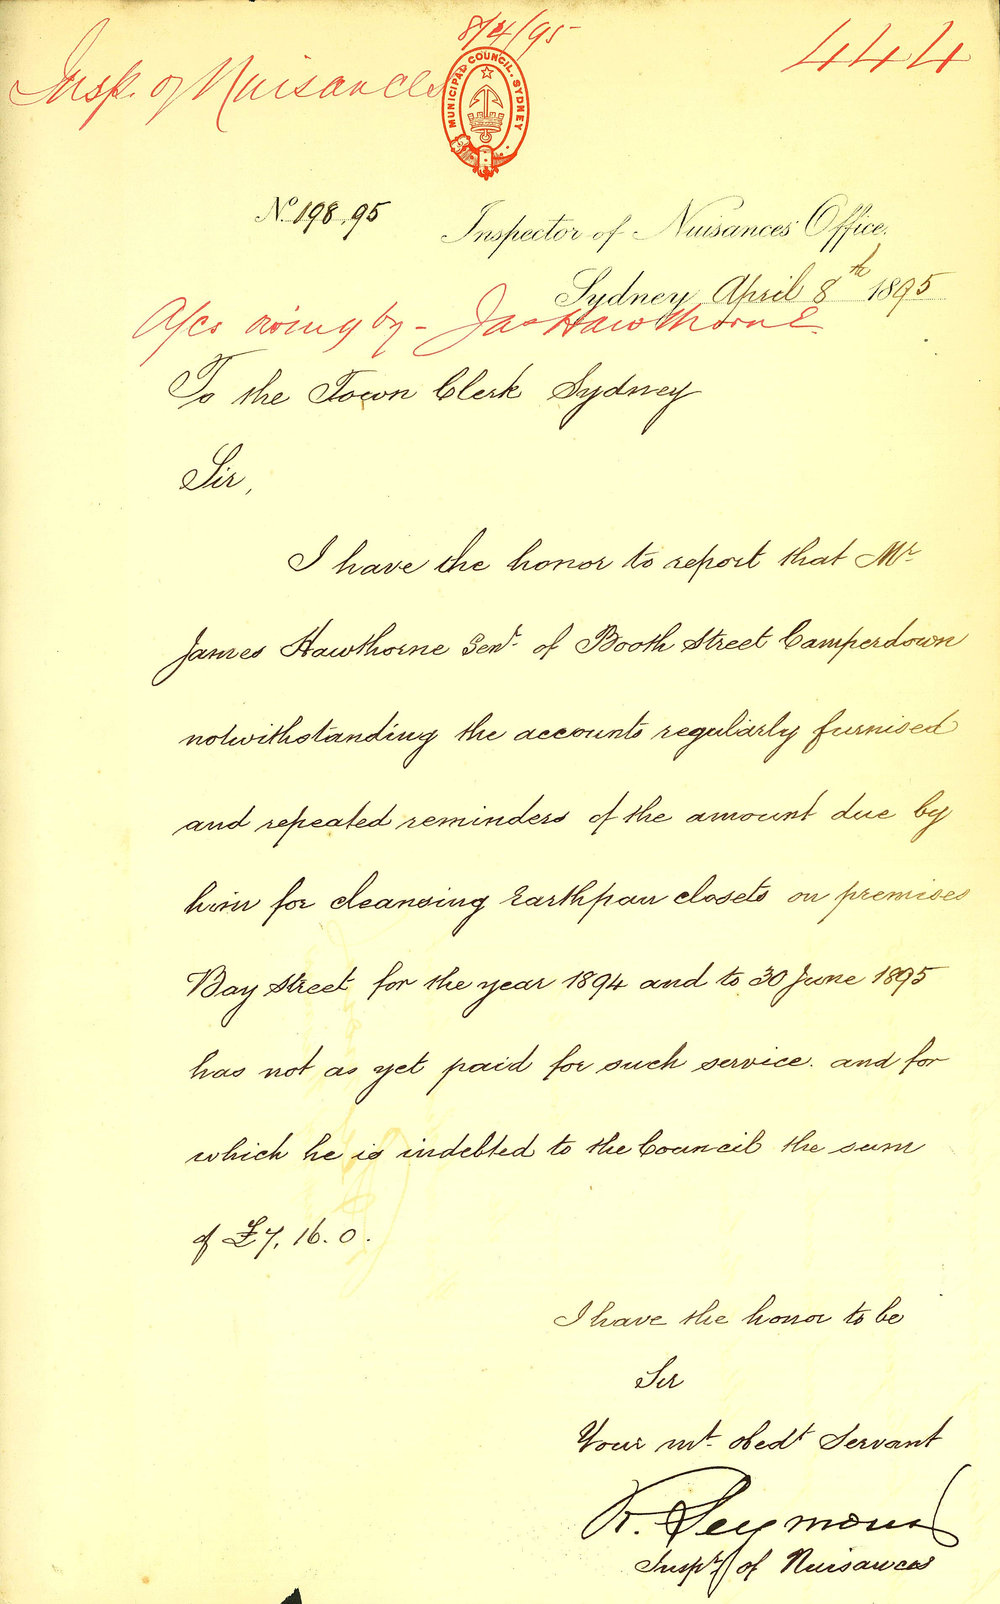 8/4/95
Insp. of Nuisances
444
MUNICIPAL COUNCIL. SYDNEY
No. 198.95
Inspector of Nuisances' Office.
Sydney April 8th 1895
A/cs owing by - Jas Hawthorne
To the Town Clerk Sydney
Sir,
I have the honor to report that Mr
James Hawthorne Senr. of Booth Street Camperdown
notwithstanding the accounts regularly furnised
and repeated reminders of the amount due by
him for cleansing Earthpan closets on premises
Bay Street for the year 1894 and to 30 June 1895
has not as yet paid for such service. and for
which he is indebted to the Council the sum
of £7. 16. 0.
I have the honor to be
Sir
Your mt. obedt Servant
R. Seymour
Inspr of Nuisances